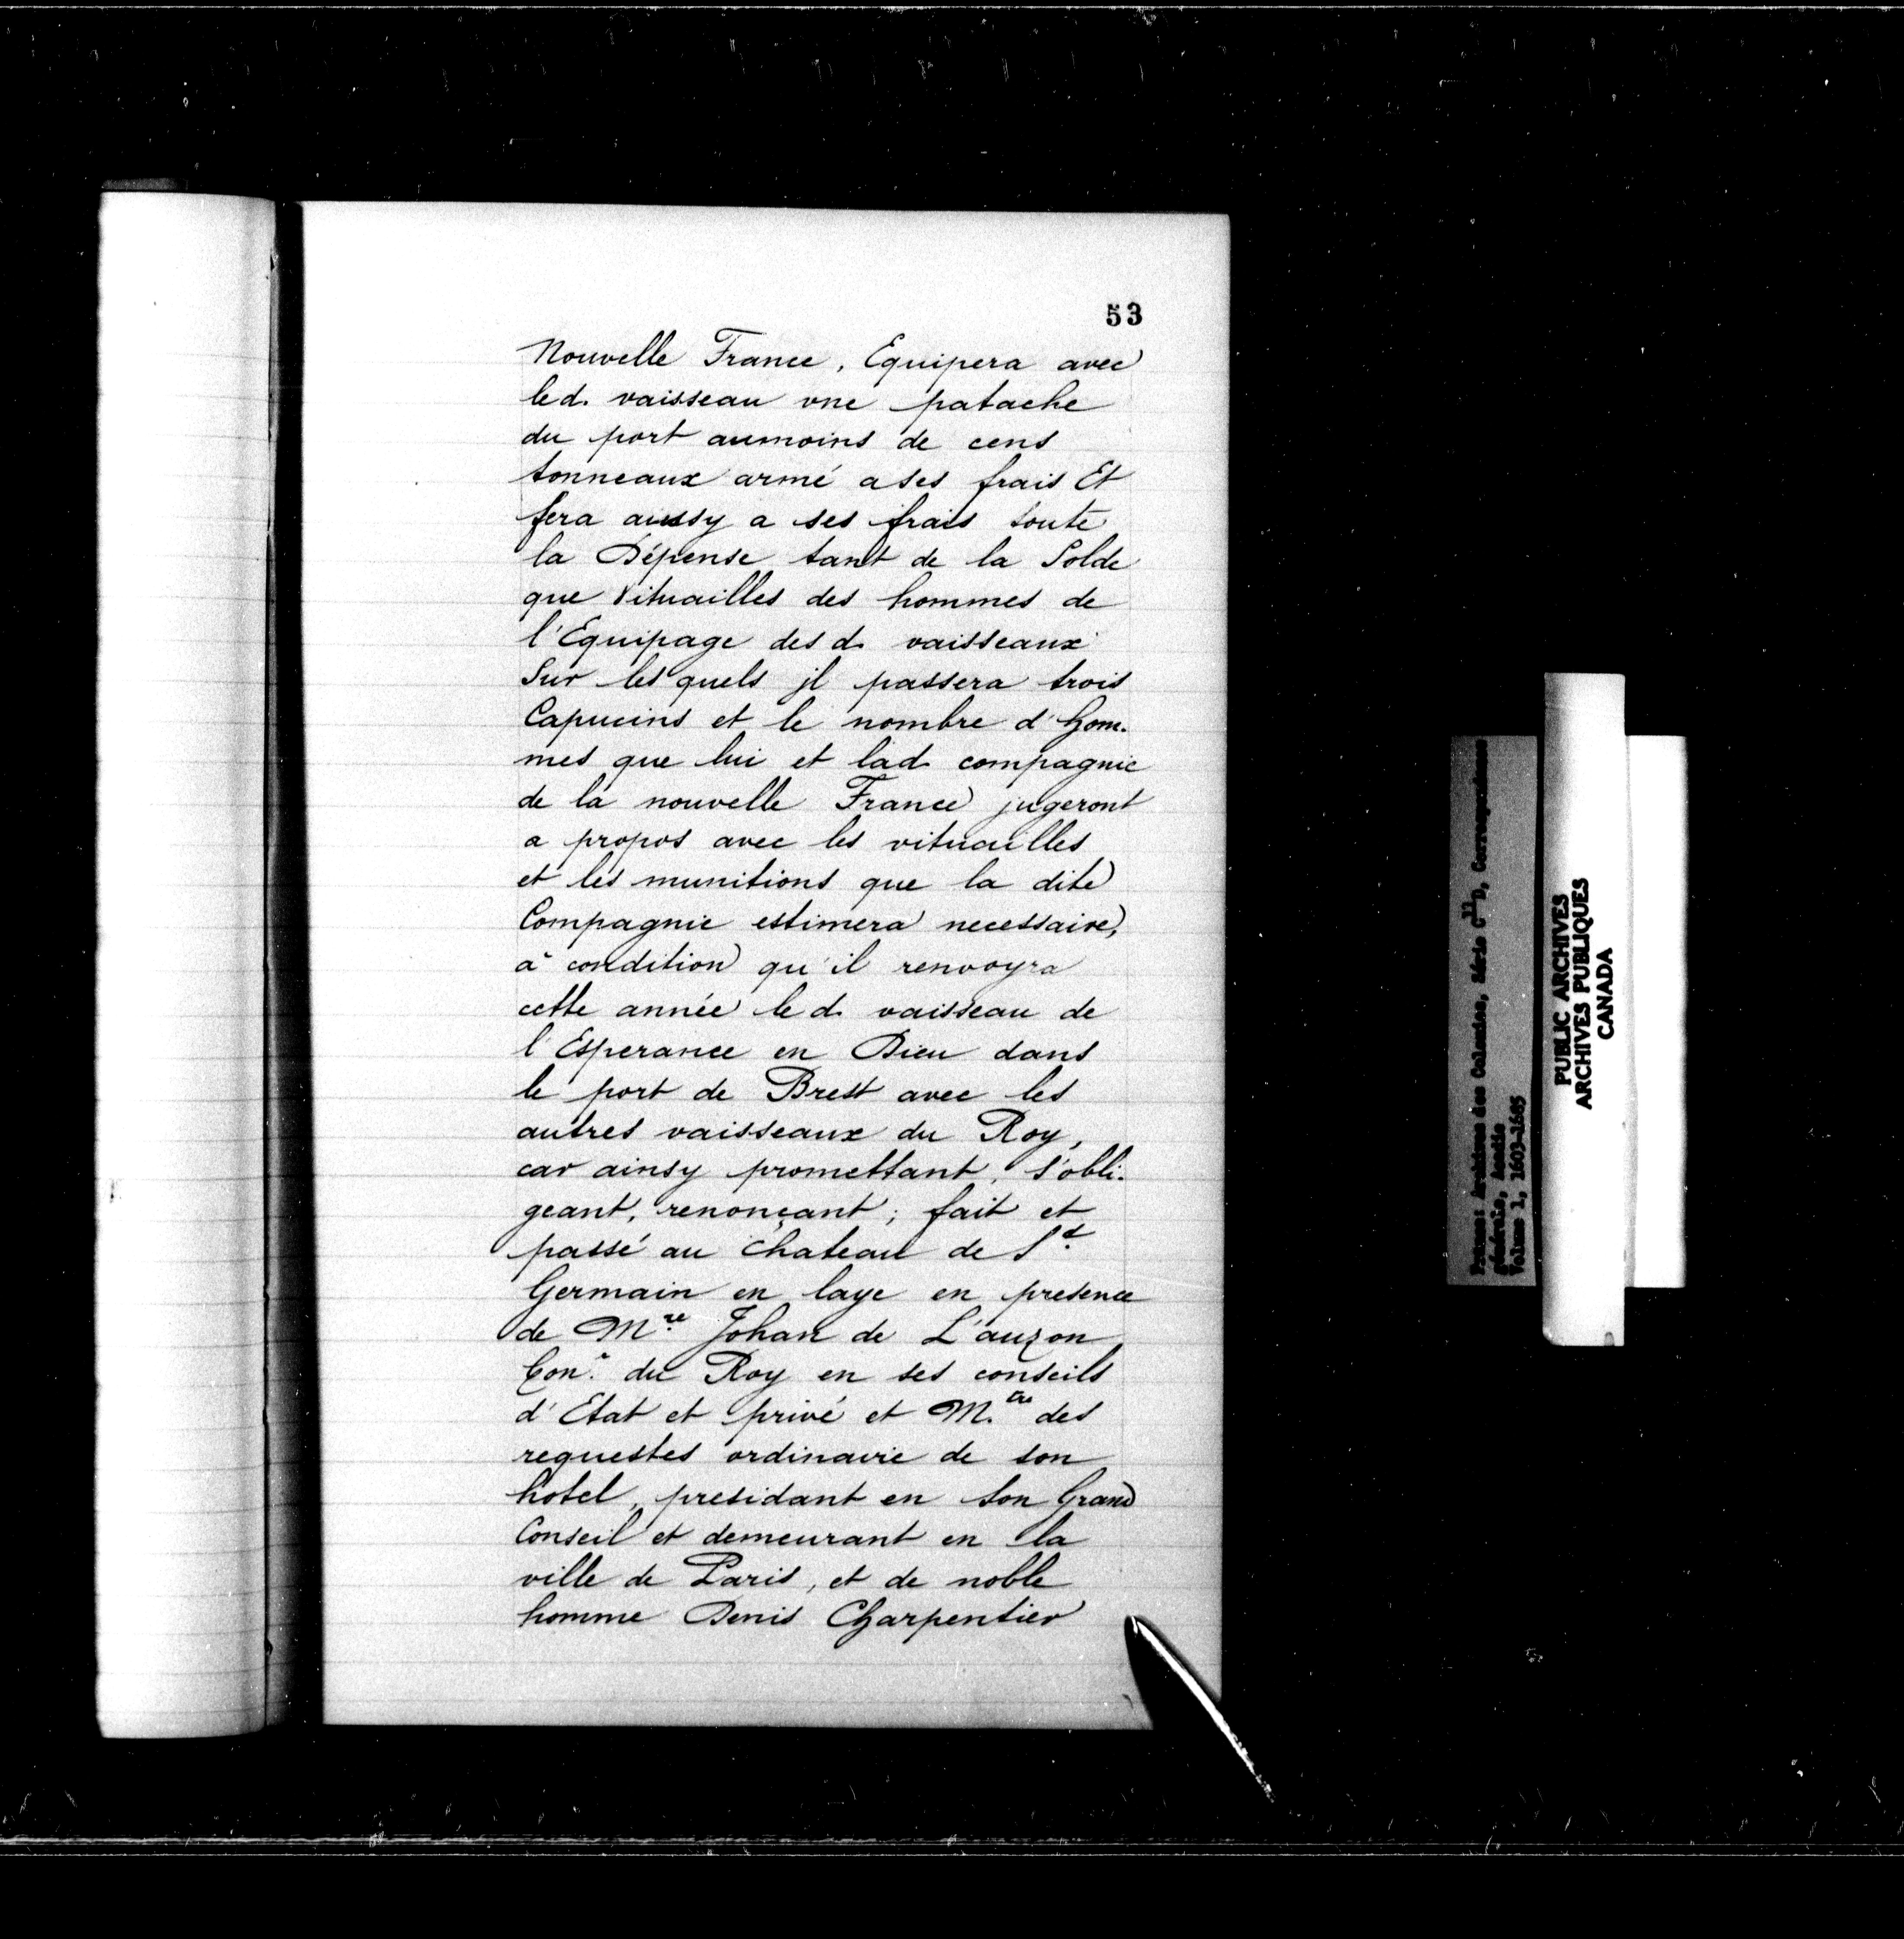 53
Nouvelle France, Equipera avec
led. vaisseau vne patache
du port aumoins de cens
tonneaux armé a ses frais Et
fera aussy a ses frais toute
la Dépense tant de la Solde
que Vituailles des hommes de
l'Equipage des d. vaisseaux
Sur lesquels jl passera trois
Capucins et le nombre d'hom-
mes que lui et lad. compagnie
de la nouvelle France jugeront
a propos avec les vituailles
et les munitions que la dite
Compagnie estimera necessaire,
a condition qu'il renvoyra
cette année le d. vaisseau de
l'Esperance en Dieu dans
le port de Brest avec les
autres vaisseaux du Roy,
car ainsy promettant, s'obli-
geant, renonçant; fait et
passé au chateau de St.
Germain en laye en presence
de Mre. Johan de L'auzon
Conr. du Roy en ses conseils
d'Etat et privé et M.tre des
requestes ordinaire de son
hotel, presidant en son Grand
Conseil et demeurant en la
ville de Paris, et de noble
homme Denis Charpentier
France: Archives des Colonies, Série C11D, Correspondance
générale, Acadie
Volume 1, 1603-1685
PUBLIC ARCHIVES
ARCHIVES PUBLIQUES
CANADA